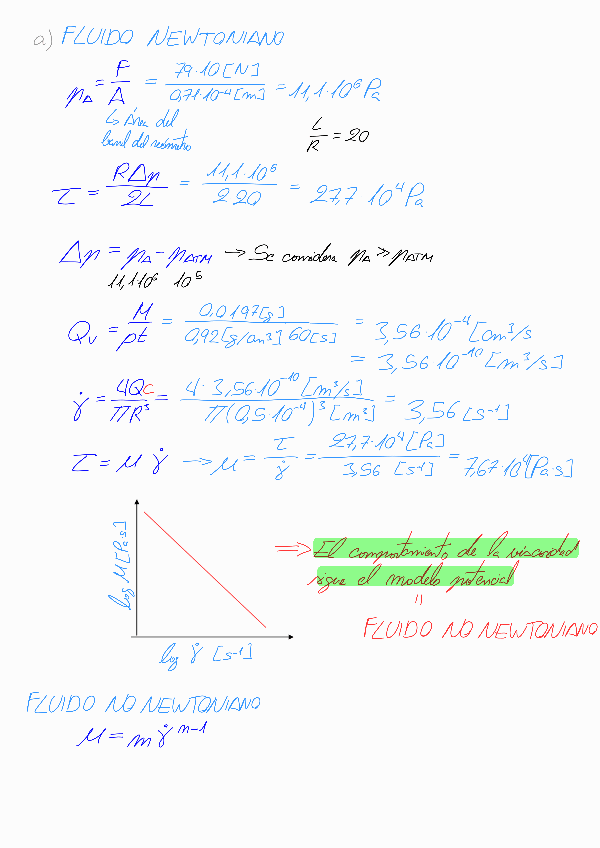 a) FLUIDO NEWTONIANO
p_A = F/A = 79·10 [N] / 0,71·10^-4 [m] = 11,1·10^6 Pa
↳ Área del
barril del reómetro
L/R = 20
τ = RΔp/2L = 11,1·10^6 / 2 20 = 27,7 10^4 Pa
Δp = p_A - p_ATM → Se considera p_A >> p_ATM
11,1·10^6 10^5
Q_v = M/ρt = 0,0197 [g] / 0,92 [g/cm^3] 60 [s] = 3,56·10^-4 [cm^3/s
= 3,56·10^-10 [m^3/s]
γ̇ = 4Qc/ΠR^3 = 4·3,56·10^-10 [m^3/s] / Π(0,5·10^-4)^3 [m^3] = 3,56 [s^-1]
τ = μ γ̇ → μ = τ/γ̇ = 27,7·10^4 [Pa] / 3,56 [s^-1] = 7,67·10^4 [Pa·s]
log μ [Pa·s]
log γ̇ [s^-1]
⇒ El comportamiento de la viscosidad
sigue el modelo potencial
=
FLUIDO NO NEWTONIANO
FLUIDO NO NEWTONIANO
μ = m γ̇^n-1